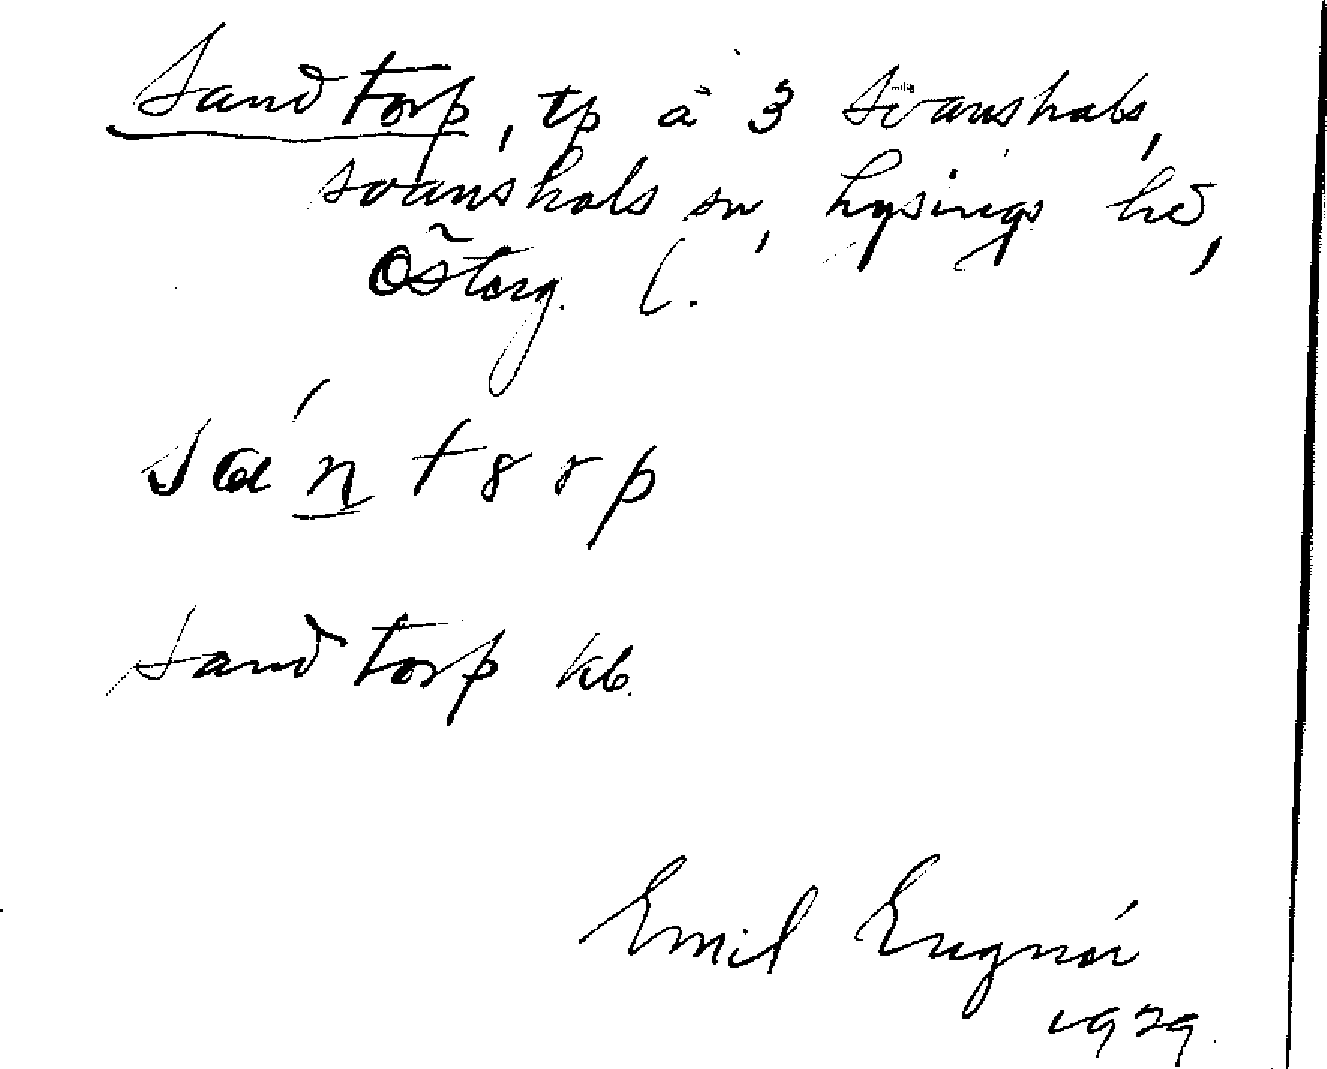 Sandtorp, tp å 3 Svanshals,
Svanshals sn, Lysings hd,
Östgg. l.
sántorp
Sandtorp kb.
Emil
1929.